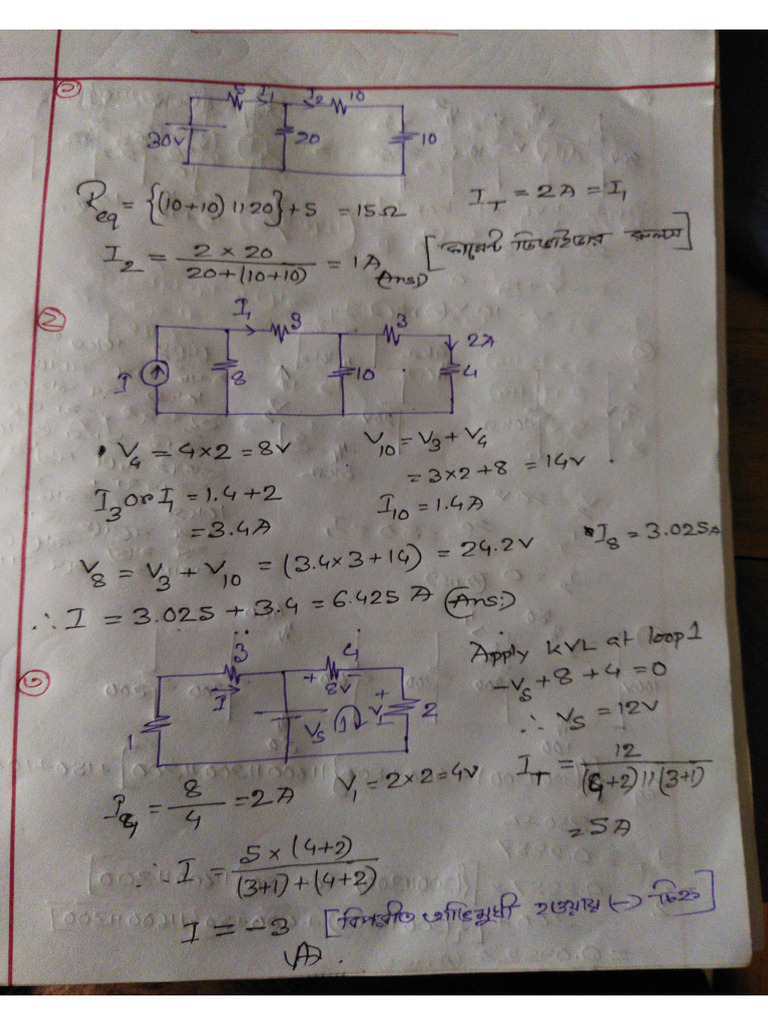 ১
5 I₁ I₂ 10
30V 20 10
Req = {(10+10) || 20} + 5 = 15Ω I_T = 2A = I₁
I₂ = 2 × 20 / 20+(10+10) = 1A (Ans:) [কারেন্ট ডিভাইডার রুলস]
২
I₁ 3 3
2A
I 8 10 4
V₄ = 4×2 = 8V V₁₀ = V₃ + V₄
= 3×2+8 = 14V
I₃ or I₁ = 1.4+2 I₁₀ = 1.4A
= 3.4A
I₈ = 3.025A
V₈ = V₃ + V₁₀ = (3.4×3+14) = 24.2V
∴ I = 3.025 + 3.4 = 6.425 A (Ans:)
৩
3 4
I + 8V -
1 Vs 1 + V₁ - 2
Apply KVL at loop 1
-Vs + 8 + 4 = 0
∴ Vs = 12V
I₄ = 8/4 = 2A V₁ = 2×2 = 4V
I_T = 12 / (4+2)||(3+1)
= 5A
∴ I = 5 × (4+2) / (3+1)+(4+2)
I = -3 [বিপরীত অভিমুখী হওয়ায় (-) চিহ্ন]